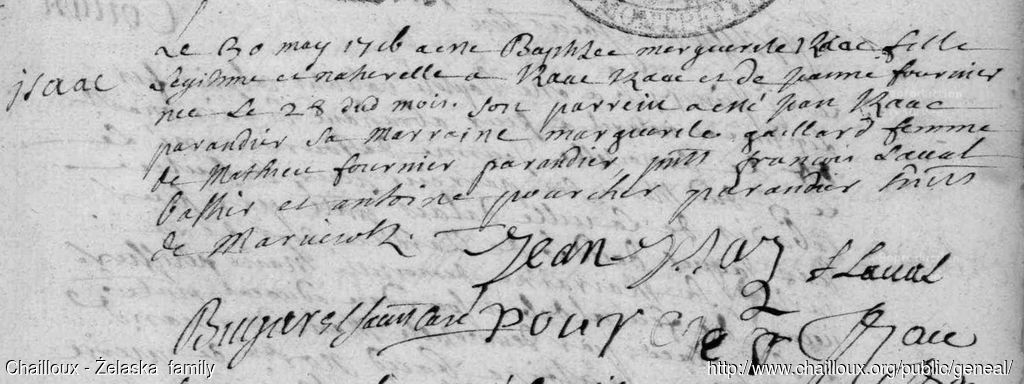 Le 30 may 1716 a esté Baptizee marguerite Izaac fille
isaac
legitime et naturelle a Izaac Izaac et de Jeanne fournier
nee Le 28 dud mois. son parrein a esté Jean Izaac
parandier sa Marraine marguerite gaillard femme
de Mathieu fournier parandier francois Laval
et antoine pourcher parandier
de Marvciols.
Jean
f Laval
pourcher
Chailloux - Żelaska family
http://www.chailloux.org/public/geneal/